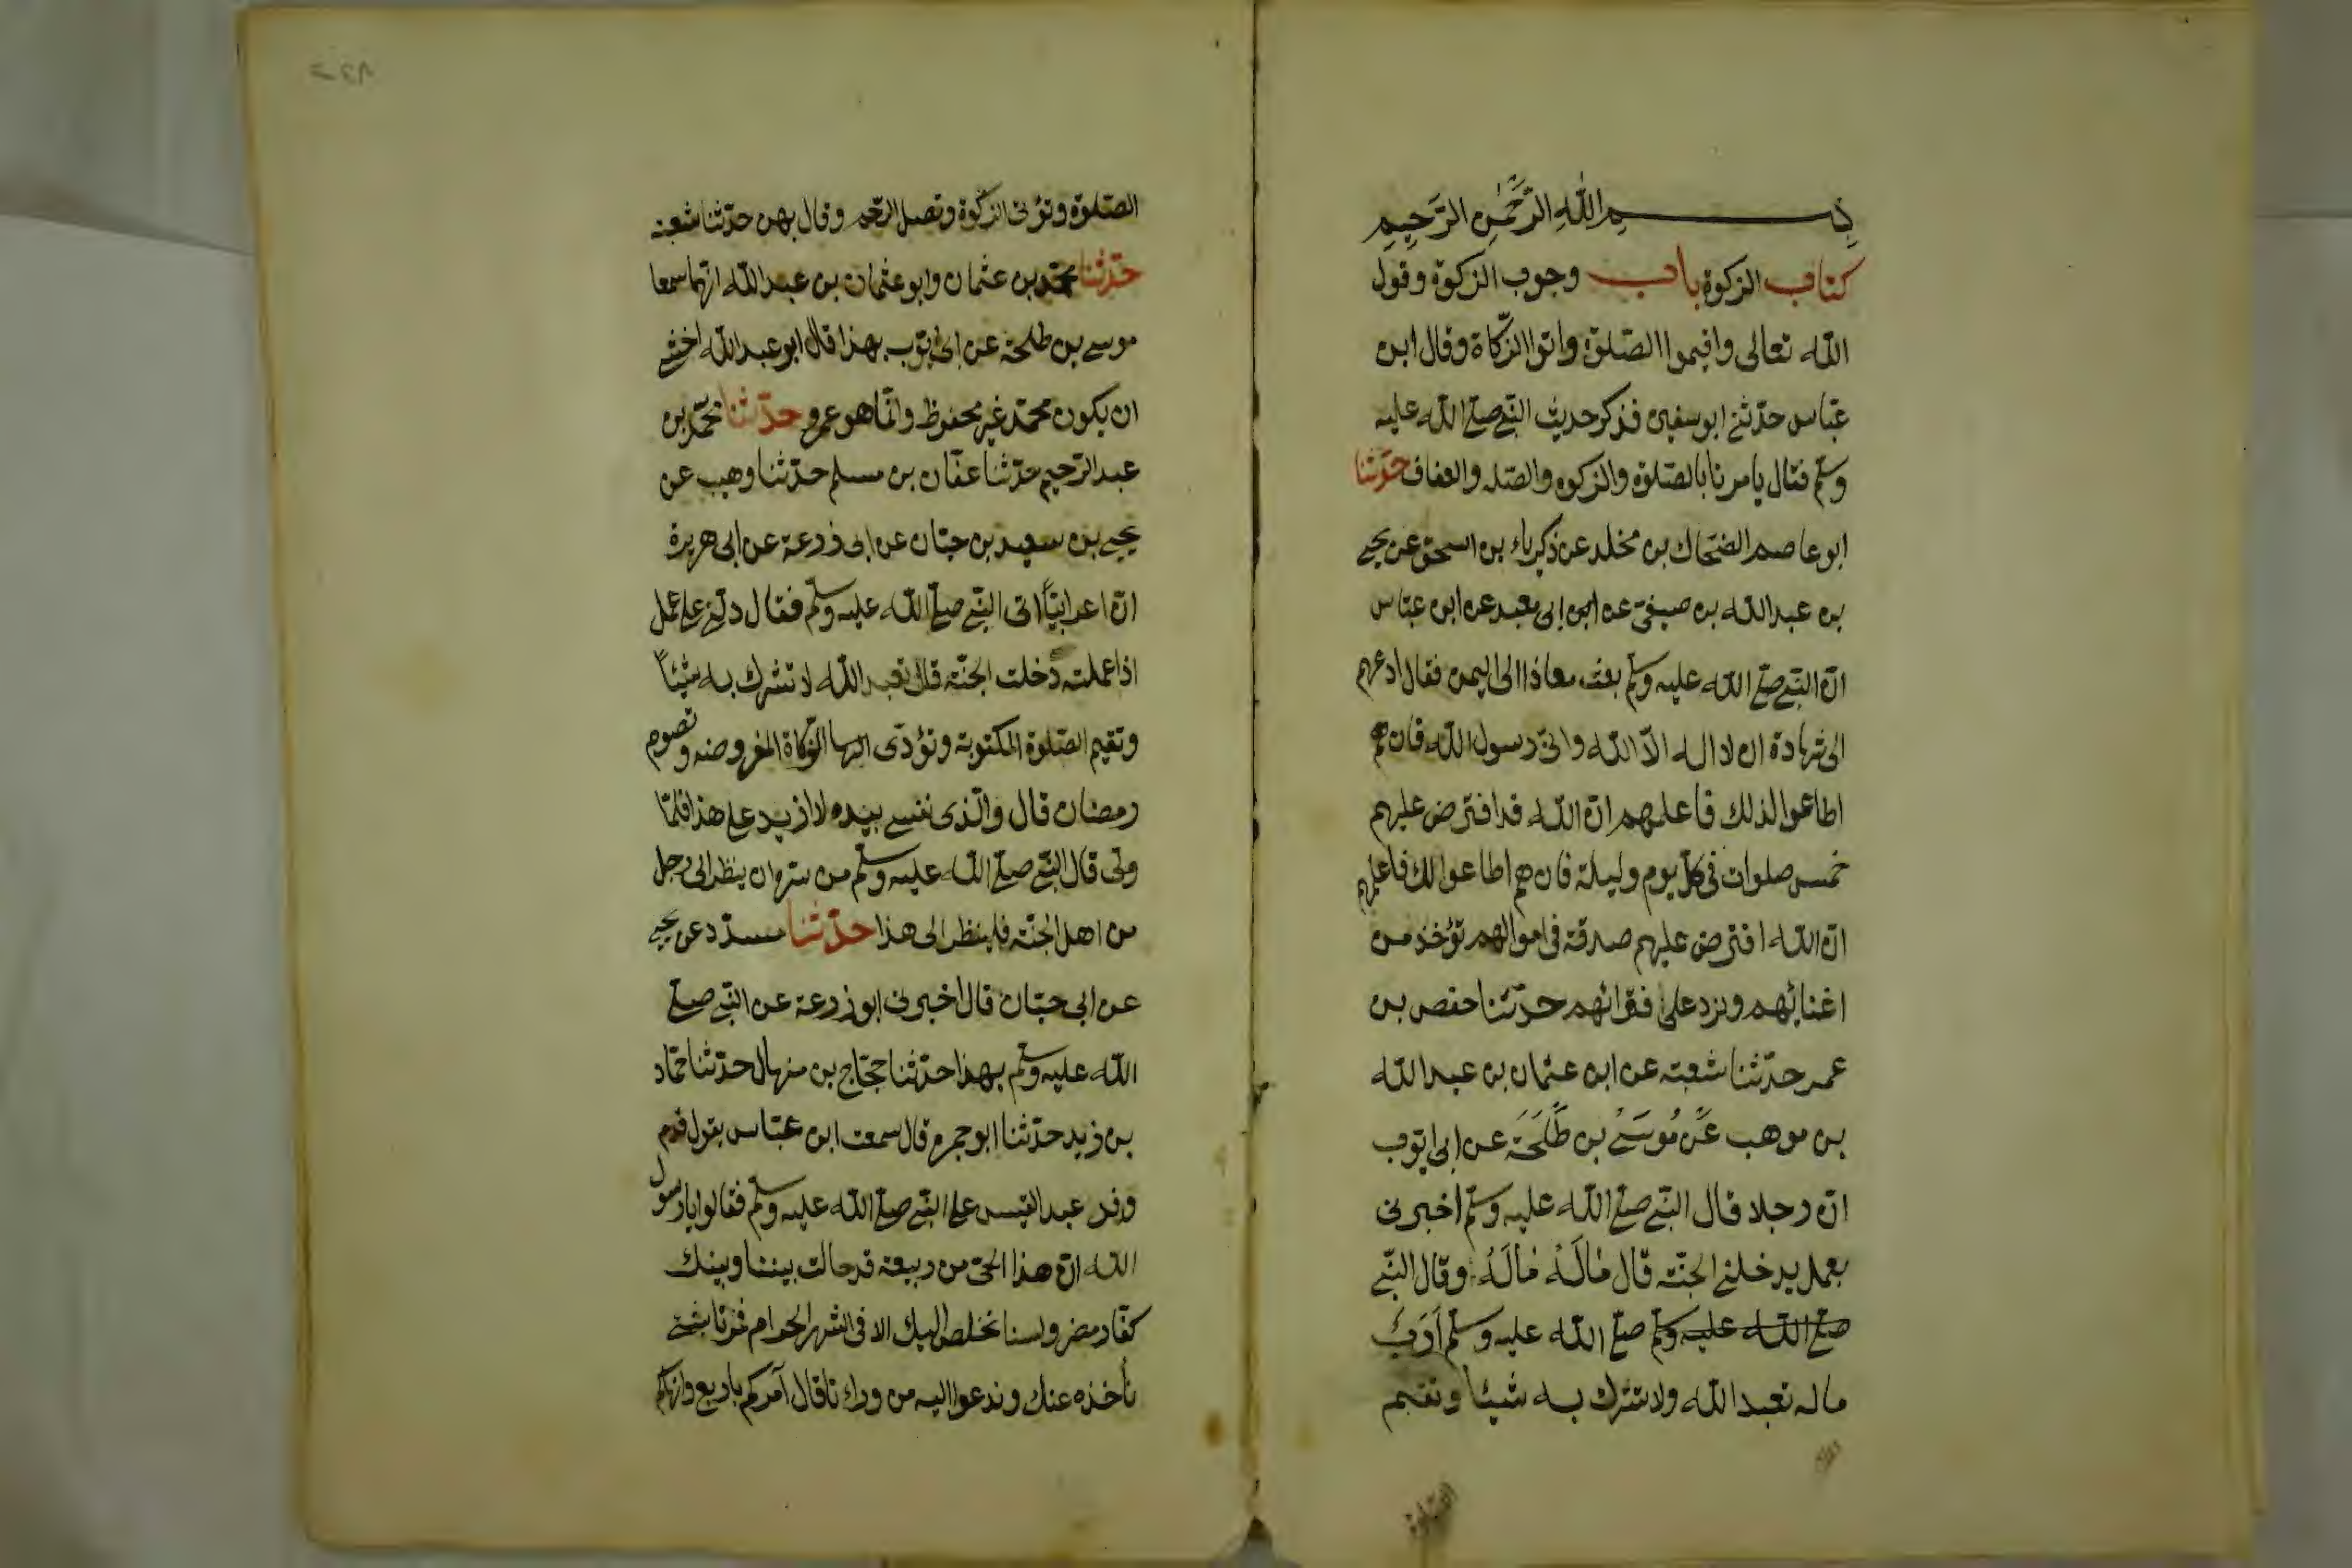 بسم الله الرَّحْمٰنِ الرَّحِيمِ
كتاب الزكوة باب وجوب الزكوة وقول
الله تعالى واقيموا الصّلوة واتوا الزّكاة وقال ابن
عبّاس حدّثني ابو سفين فذكر حديث النّبي صلى الله عليه
وسلم فقال يامرنا بالصّلوة والزكوة والصله والعفاف حدّثنا
ابو عاصم الضحّاك بن مخلد عن زكرياء بن اسحق عن يحيى
بن عبد الله بن صيفيّ عن ابى معبد عن ابن عبّاس
انّ النّبي صلى الله عليه وسلم بعث معاذا الى اليمن فقال ادعهم
الى شهادة ان لا اله الّا الله وانّى رسول الله فان هم
اطاعوا لذلك فاعلمهم انّ الله قد افترض عليهم
خمس صلوات في كلّ يوم وليلة فان هم اطاعوا لك فاعلمهم
انّ الله افترض عليهم صدقة فى اموالهم تؤخذ من
اغنيائهم وتردّ على فقرائهم حدّثنا حفص بن
عمر حدّثنا شعبة عن ابن عثمان بن عبد الله
بن موهب عَن مُوسَى بن طَلحَة عن ابى ايّوب
انّ رجلا قال النّبي صلى الله عليه وسلم اخبرنى
بعمل يدخلني الجنّة قال مَالَهُ مَالَهُ وقال النّبي
صلى الله عليه وسلم صلى الله عليه وسلم أرَبٌ
ماله تعبد الله ولا تشرك به شيئا وتقيم
الصّلوة
الصّلوة وتؤتى الزكوة وتصل الرّحم وقال بهز حدّثنا شعبة
حدّثنا محمّد بن عثمان وابو عثمان بن عبد الله انّهما سمعا
موسى بن طلحة عن ابى ايّوب بهذا قال ابو عبد الله اخشى
ان يكون محمّد غير محفوظ وانّما هو عمرو حدّثنا محمّد بن
عبد الرّحيم حدّثنا عفّان بن مسلم حدّثنا وهيب عن
يحيى بن سعيد بن حيّان عن ابى زرعة عن ابى هريرة
انّ اعرابيّاً اتى النّبي صلى الله عليه وسلم فقال دلّني على عمل
اذا عملته دخلت الجنّة قال تعبد الله لا تشرك به شيئاً
وتقيم الصّلوة المكتوبة وتؤدّى اليها الزّكاة المفروضه وتصوم
رمضان قال والّذى نفسى بيده لا ازيد على هذا فلمّا
ولّى قال النّبي صلى الله عليه وسلم من سرّه ان ينظر الى رجل
من اهل الجنّة فلينظر الى هذا حدّثنا مسدّد عن يحيى
عن ابى حيّان قال اخبرنى ابو زرعة عن النّبي صلى
الله عليه وسلم بهذا حدّثنا حجّاج بن منهال حدّثنا حمّاد
بن زيد حدّثنا ابو جمرة قال سمعت ابن عبّاس يقول قدم
وفد عبد القيس على النّبي صلى الله عليه وسلم فقالوا يا رسول
الله انّ هذا الحىّ من ربيعة قد حالت بيننا وبينك
كفّار مضر ولسنا نخلص اليك الا فى الشهر الحرام فمرنا بشئ
نأخذه عنك وندعوا اليه من وراءنا قال آمركم باربع وانهاكم